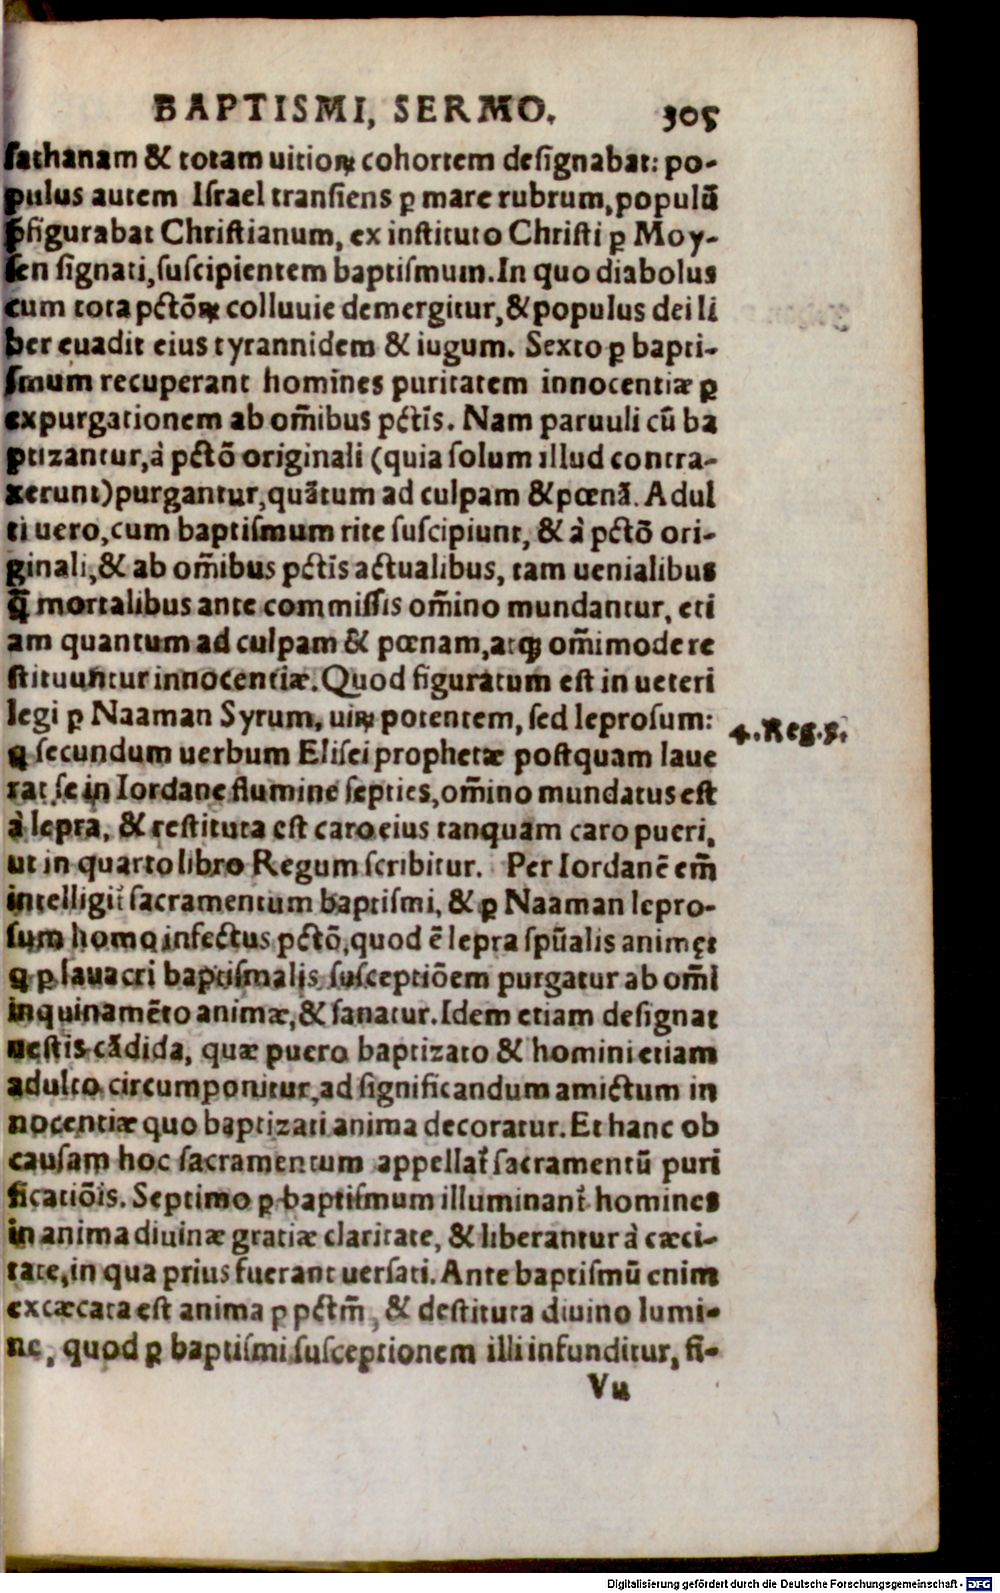 BAPTISMI, SERMO. 305
sathanam & totam uitioꝝ cohortem designabat: po-
pulus autem Israel transiens ꝑ mare rubrum, populũ
p̃figurabat Christianum, ex instituto Christi ꝑ Moy-
sen signati, suscipientem baptismum. In quo diabolus
cum tota pctõꝝ colluuie demergitur, & populus dei li
ber euadit eius tyrannidem & iugum. Sexto ꝑ bapti-
smum recuperant homines puritatem innocentiæ ꝑ
expurgationem ab om̃ibus pctĩs. Nam paruuli cũ ba
ptizantur, à pctõ originali (quia solum illud contra-
xerunt) purgantur, quãtum ad culpam & pœnã. Adul
ti uero, cum baptismum rite suscipiunt, & à pctõ ori-
ginali, & ab om̃ibus pctĩs actualibus, tam uenialibus
q̃ mortalibus ante commissis om̃ino mundantur, eti
am quantum ad culpam & pœnam, atqꝫ om̃imode re
stituuntur innocentiæ. Quod figuratum est in ueteri
legi ꝑ Naaman Syrum, uiꝝ potentem, sed leprosum:
4. Reg. 5.
q secundum uerbum Elisei prophetæ postquam laue
rat se in Iordane flumine septies, om̃ino mundatus est
à lepra, & restituta est caro eius tanquam caro pueri,
ut in quarto libro Regum scribitur. Per Iordanẽ em̃
intelligit᷑ sacramentum baptismi, & ꝑ Naaman lepro-
sum homo infectus pctõ, quod ẽ lepra spũalis animę:
q ꝑ lauacri baptismalis susceptiõem purgatur ab om̃i
inquinamẽto animæ, & sanatur. Idem etiam designat
uestis cãdida, quæ puero baptizato & homini etiam
adulto circumponitur, ad significandum amictum in
nocentiæ quo baptizati anima decoratur. Et hanc ob
causam hoc sacramentum appellat᷑ sacramentũ puri
ficatiõis. Septimo ꝑ baptismum illuminant᷑ homines
in anima diuinæ gratiæ claritate, & liberantur à cæci-
tate, in qua prius fuerant uersati. Ante baptismũ enim
excæcata est anima ꝑ pctm̃, & destituta diuino lumi-
ne, quod ꝑ baptismi susceptionem illi infunditur, fi-
Vu
Digitalisierung gefördert durch die Deutsche Forschungsgemeinschaft - DFG